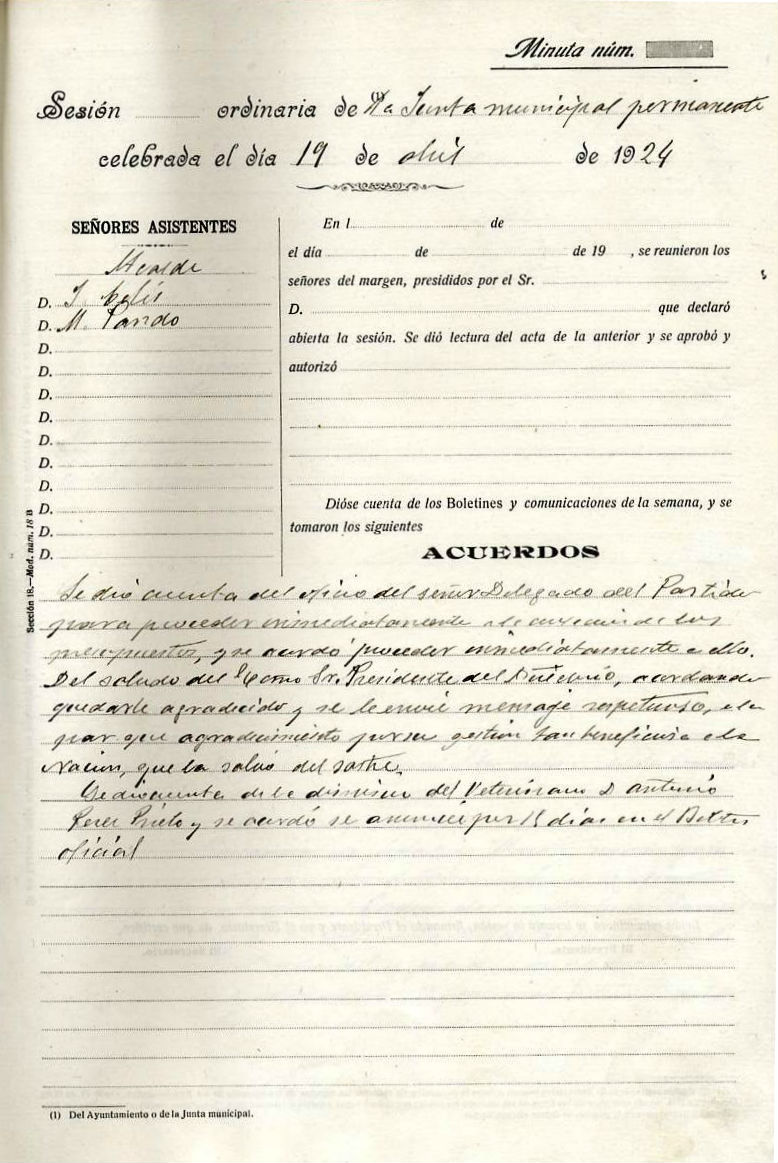 Minuta núm.
Sesión ordinaria de la Junta municipal permanente
celebrada el día 19 de abril de 1924
SEÑORES ASISTENTES
Alcalde
D. J. Celis
D. M. Pando
D.
D.
D.
D.
D.
D.
D.
D.
D.
D.
Sección 18.—Mod. núm. 18 B
En l de
el día de de 19 , se reunieron los
señores del margen, presididos por el Sr.
D. que declaró
abierta la sesión. Se dió lectura del acta de la anterior y se aprobó y
autorizó
Dióse cuenta de los Boletines y comunicaciones de la semana, y se
tomaron los siguientes
ACUERDOS
Se dió cuenta del oficio del señor Delegado del Partido
para proceder inmediatamente a la de los
presupuestos, y se acordó proceder inmediatamente a ello.
Del saludo del Excmo Sr. Presidente del Directorio, acordando
quedarle agradecido y se le envie mensage respetuoso, a la
par que agradecimiento por su gestión tan beneficiosa a la
Nación, que la salvó del
Se dio cuenta de la dimision del Veterinario D Antonio
Perez Prieto y se acordó se anuncie por 15 dias en el Boletin
oficial
(1) Del Ayuntamiento o de la Junta municipal.